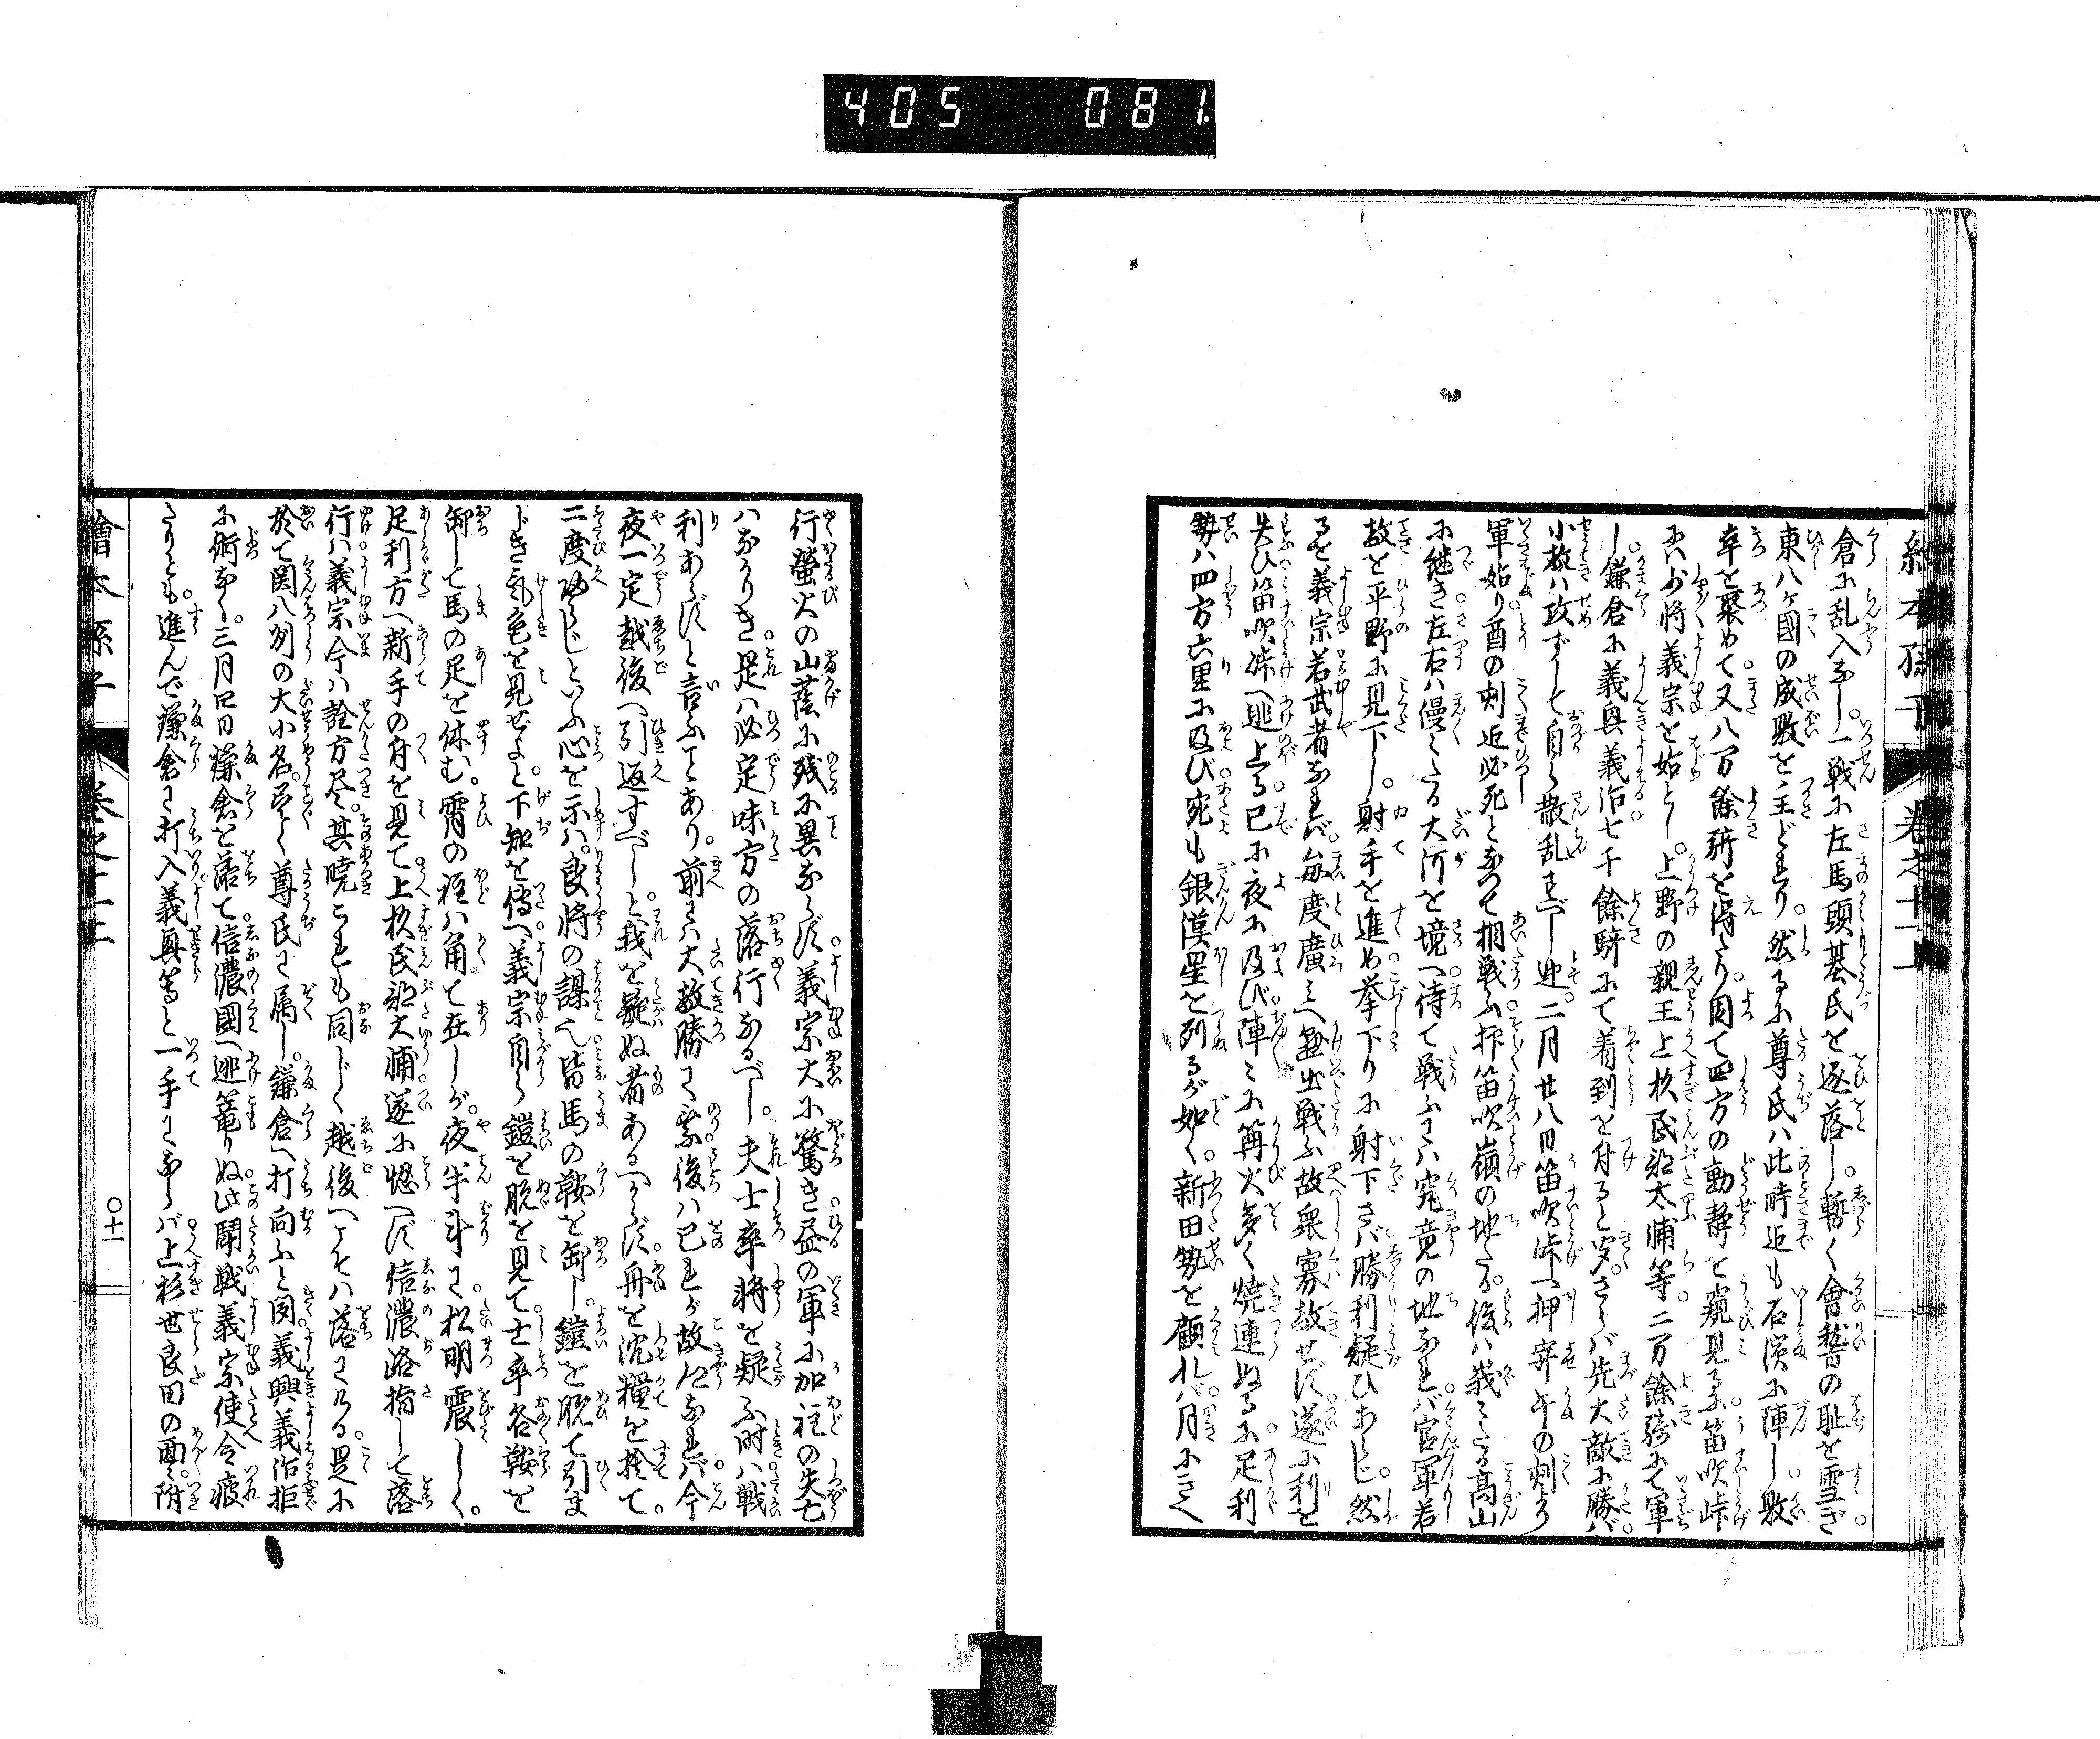 405 081.
繪本孫子 巻之十二
倉に乱入なし。一戦に左馬頭基氏を逐落し。暫く會誓の恥を雪ぎ
東八ヶ國の成敗を主どれり。然るに尊氏ハ此時迄も石濱に陣し。敗
卒を聚めて。又八万餘騎を得たり。因て四方の動静を窺見るに。笛吹峠
にハ少将義宗を始とし。上野の親王上杦民部太浦等。二万餘騎にて軍
し。鎌倉に義興義治七千餘騎にて着到を付ると聞。さらバ先大敵に勝バ
小敵ハ攻ずして自ら散乱すべし迚。二月廿八日笛吹峠へ押寄午の刻より
軍始り酉の刻迄必死となつて相戦ふ。抑笛吹嶺の地たる。後ハ峩〻たる高山
に継き左右ハ漫〻たる大河を境へ。待て戦ふにハ究竟の地なれバ。官軍若
敵を平野に見下し。射手を進め挙下りに射下さバ勝利疑ひあらじ。然
るを義宗若武者なれバ。毎度廣ミへ進出戦ふ故衆寡敵せず。遂に利を
失ひ笛吹峠へ逃上る。已に夜に及び陣〻に篝火多く焼連ぬるに。足利
勢ハ四方六里に及び宛も銀漢星を列るが如く。新田勢を顧れバ。月にきへ
行螢火の山蔭に残に異ならず。義宗大に驚き昼の軍に加程の失亡
ハなかりき。是ハ必定味方の落行なるべし。夫士卒将を疑ふ時ハ戦
利あらずと言ふことあり。前にハ大敵勝に乗。後ハ已れが故郷なれバ。今
夜一定越後へ引返すべしと我を疑ぬ者あるべからず。舟を沈糧を捨て。
二度帰らじといふ心を示ハ。良将の謀也。皆馬の鞍を卸し。鎧を脱て引ま
じき気色を見せよと。下知を傳へ義宗自ら鎧を脱を見て。士卒各鞍を
卸して馬の足を休む。宵の程ハ角て在しが。夜半斗に。松明震しく。
足利方へ新手の付を見て。上杦民部大浦遂に怺へず信濃路指して落
行ハ義宗今ハ詮方尽。其暁これも同じく越後へこそハ落にける。是に
於て関八州の大小名。尽く尊氏に属し。鎌倉へ打向ふと聞。義興義治拒
に術なく。三月四日鎌倉を落て。信濃國へ逃篭りぬ。此闘戦義宗使令疲
たりとも。進んで鎌倉に打入義興等と一手にならバ。上杉世良田の面〻附
繪本孫子 巻之十二 〇十一